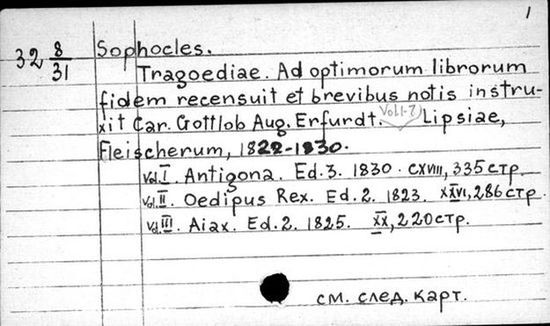 1
32 8/31 Sophocles.
Tragoediae. Ad optimorum librorum
fidem recensuit et brevibus notis instru-
xit Car. Gottlob Aug. Erfurdt. Vol.1-7 Lipsiae,
Fleischerum, 1822-1830.
Vol.I. Antigona. Ed.3. 1830. CXVIII, 335 стр.
Vol.II. Oedipus Rex. Ed.2. 1823. XXVI, 286 стр.
Vol.III. Aiax. Ed.2. 1825. XX, 220 стр.
см. след. карт.